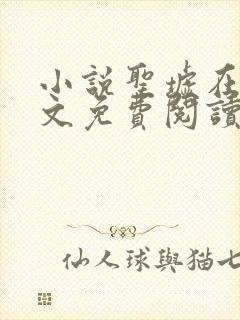 小説聖墟在
文免費閱讀
仙人球與猫七